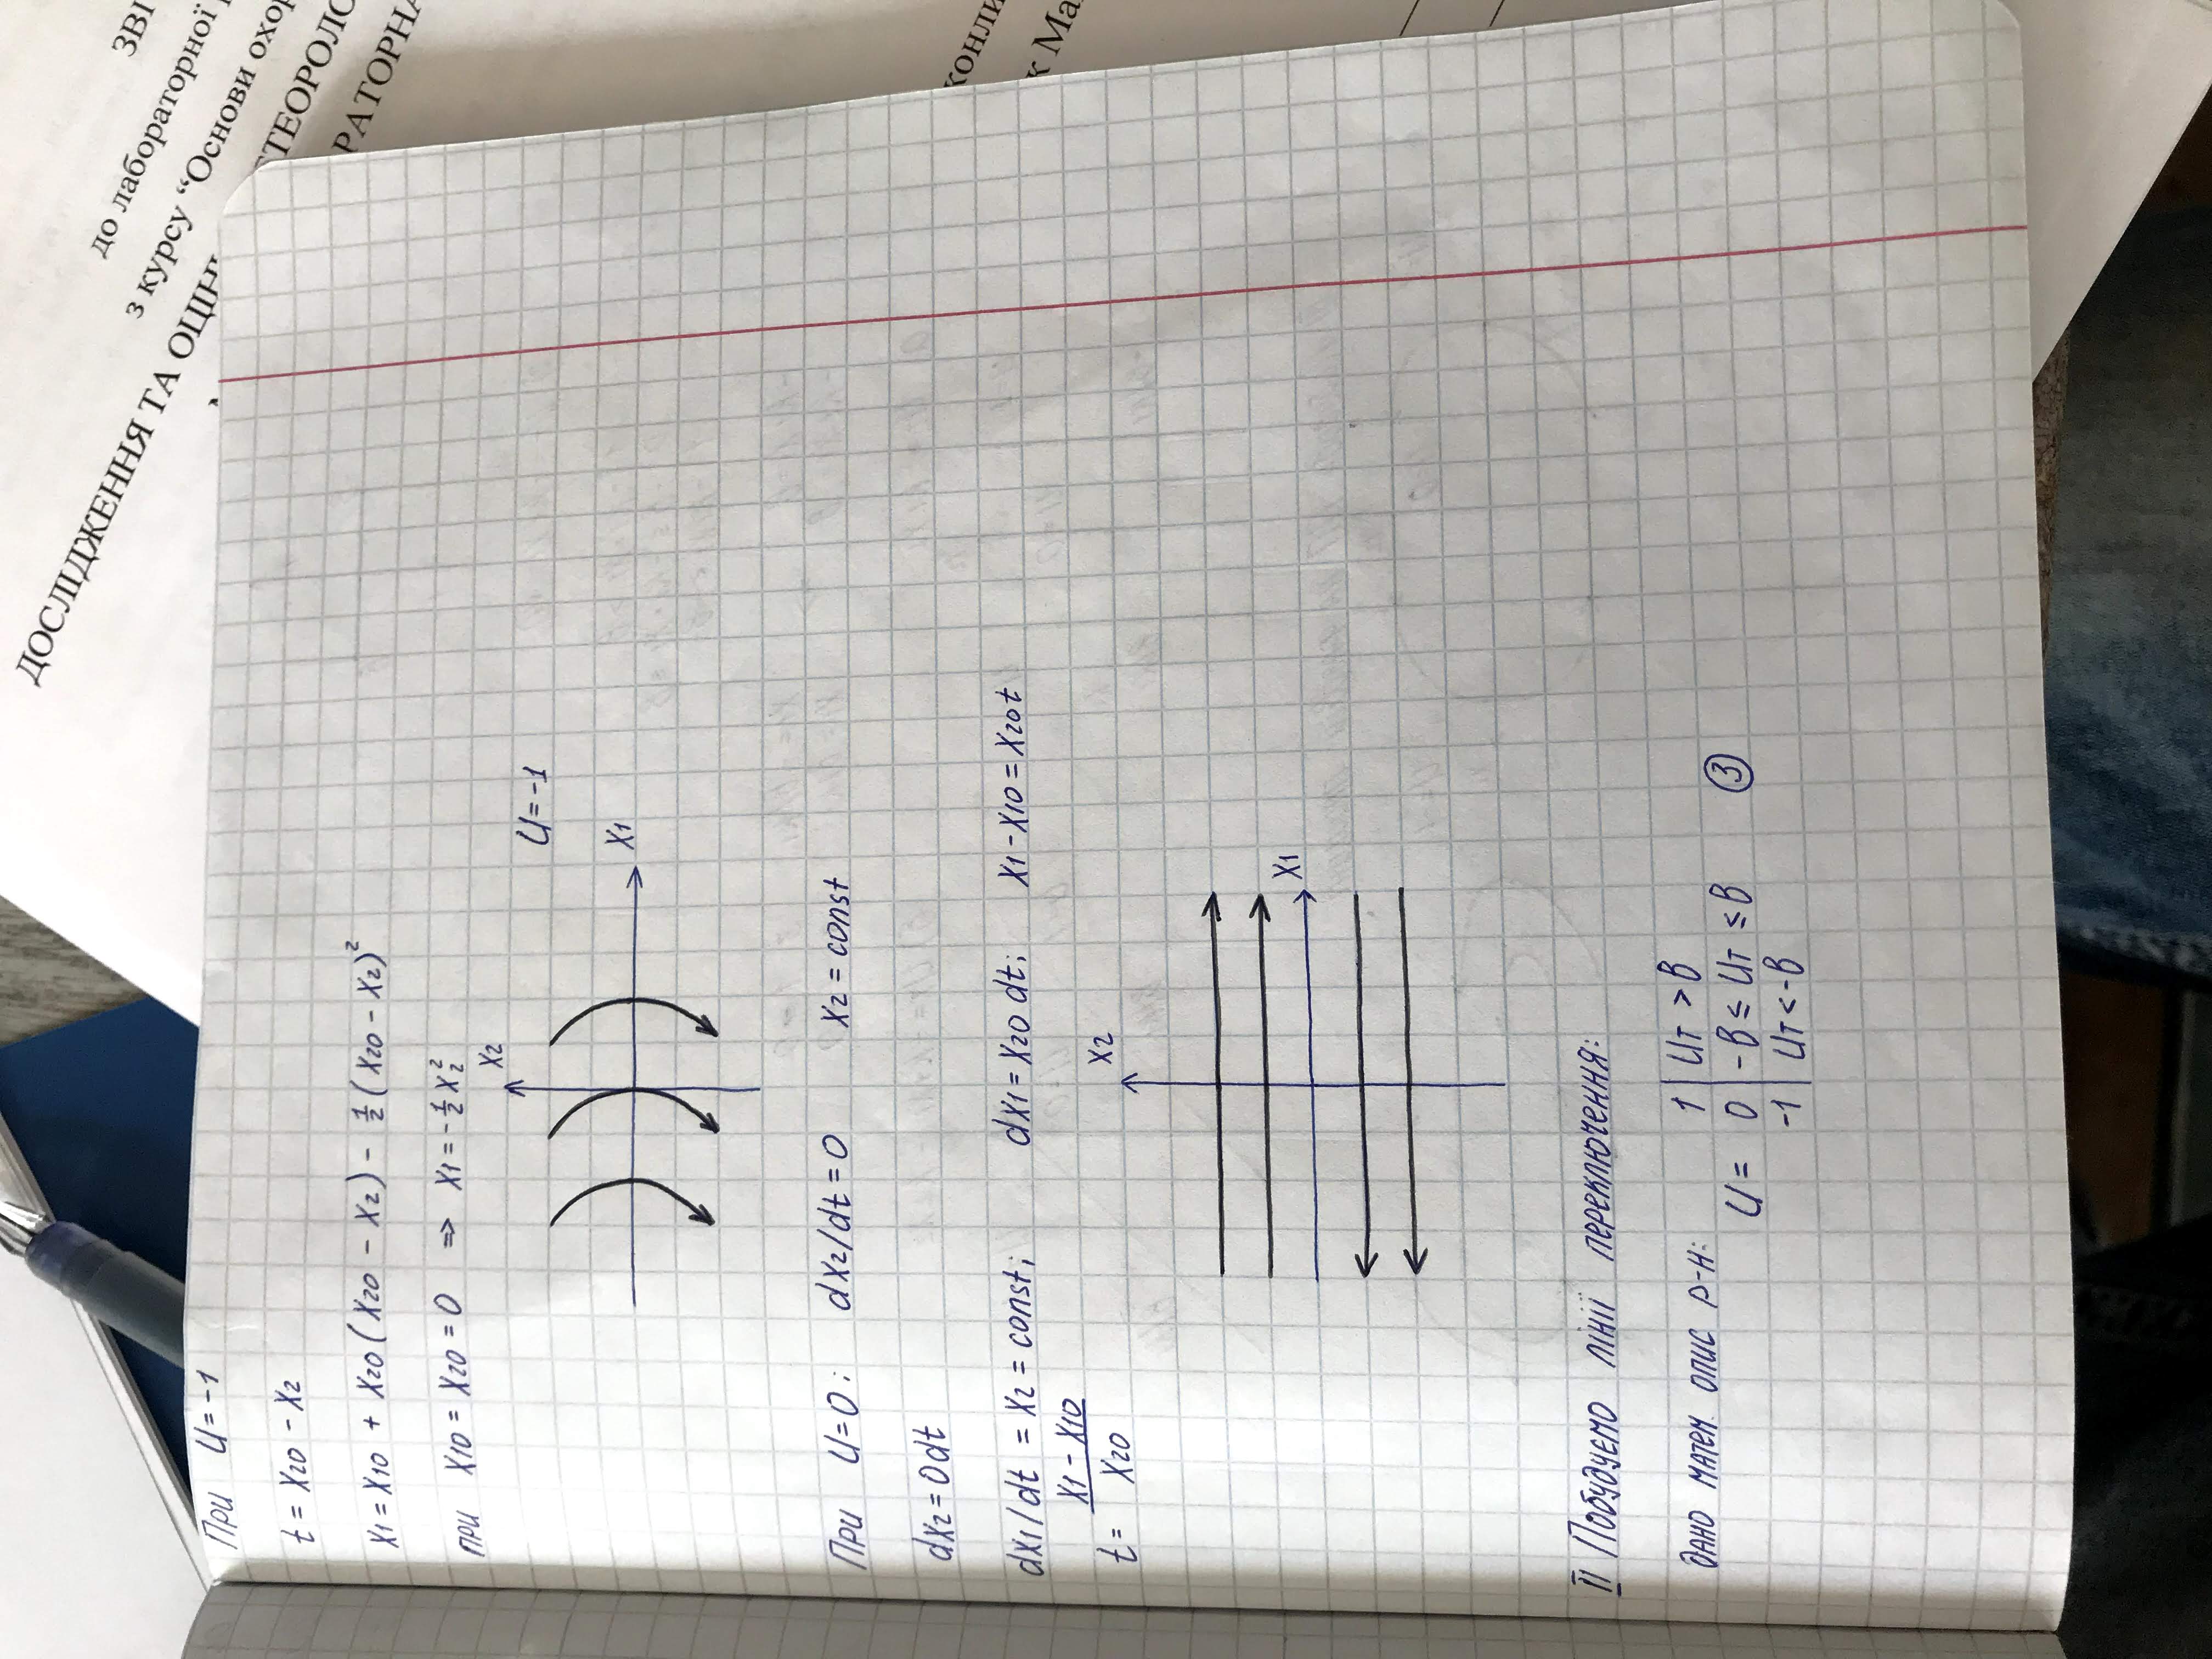 ЗВІ
до лабораторної
з курсу “Основи охор
ДОСЛІДЖЕННЯ ТА ОЦІН
ТЕОРОЛО
РАТОРНА
конли
к Ма
При U = -1
t = X20 - X2
X1 = X10 + X20 (X20 - X2) - 1/2 (X20 - X2)²
при X10 = X20 = 0 ⇒ X1 = -1/2 X2²
X2
U = -1
X1
При U = 0; dX2/dt = 0 X2 = const
dX2 = 0dt
dX1/dt = X2 = const; dX1 = X20 dt; X1 - X10 = X20t
t = (X1 - X10)/X20
X2
X1
II Побудуємо лінії переключення:
дано матем. опис р-н:
1 | Uт > B
U = 0 | -B ≤ Uт ≤ B ③
-1 | Uт < -B